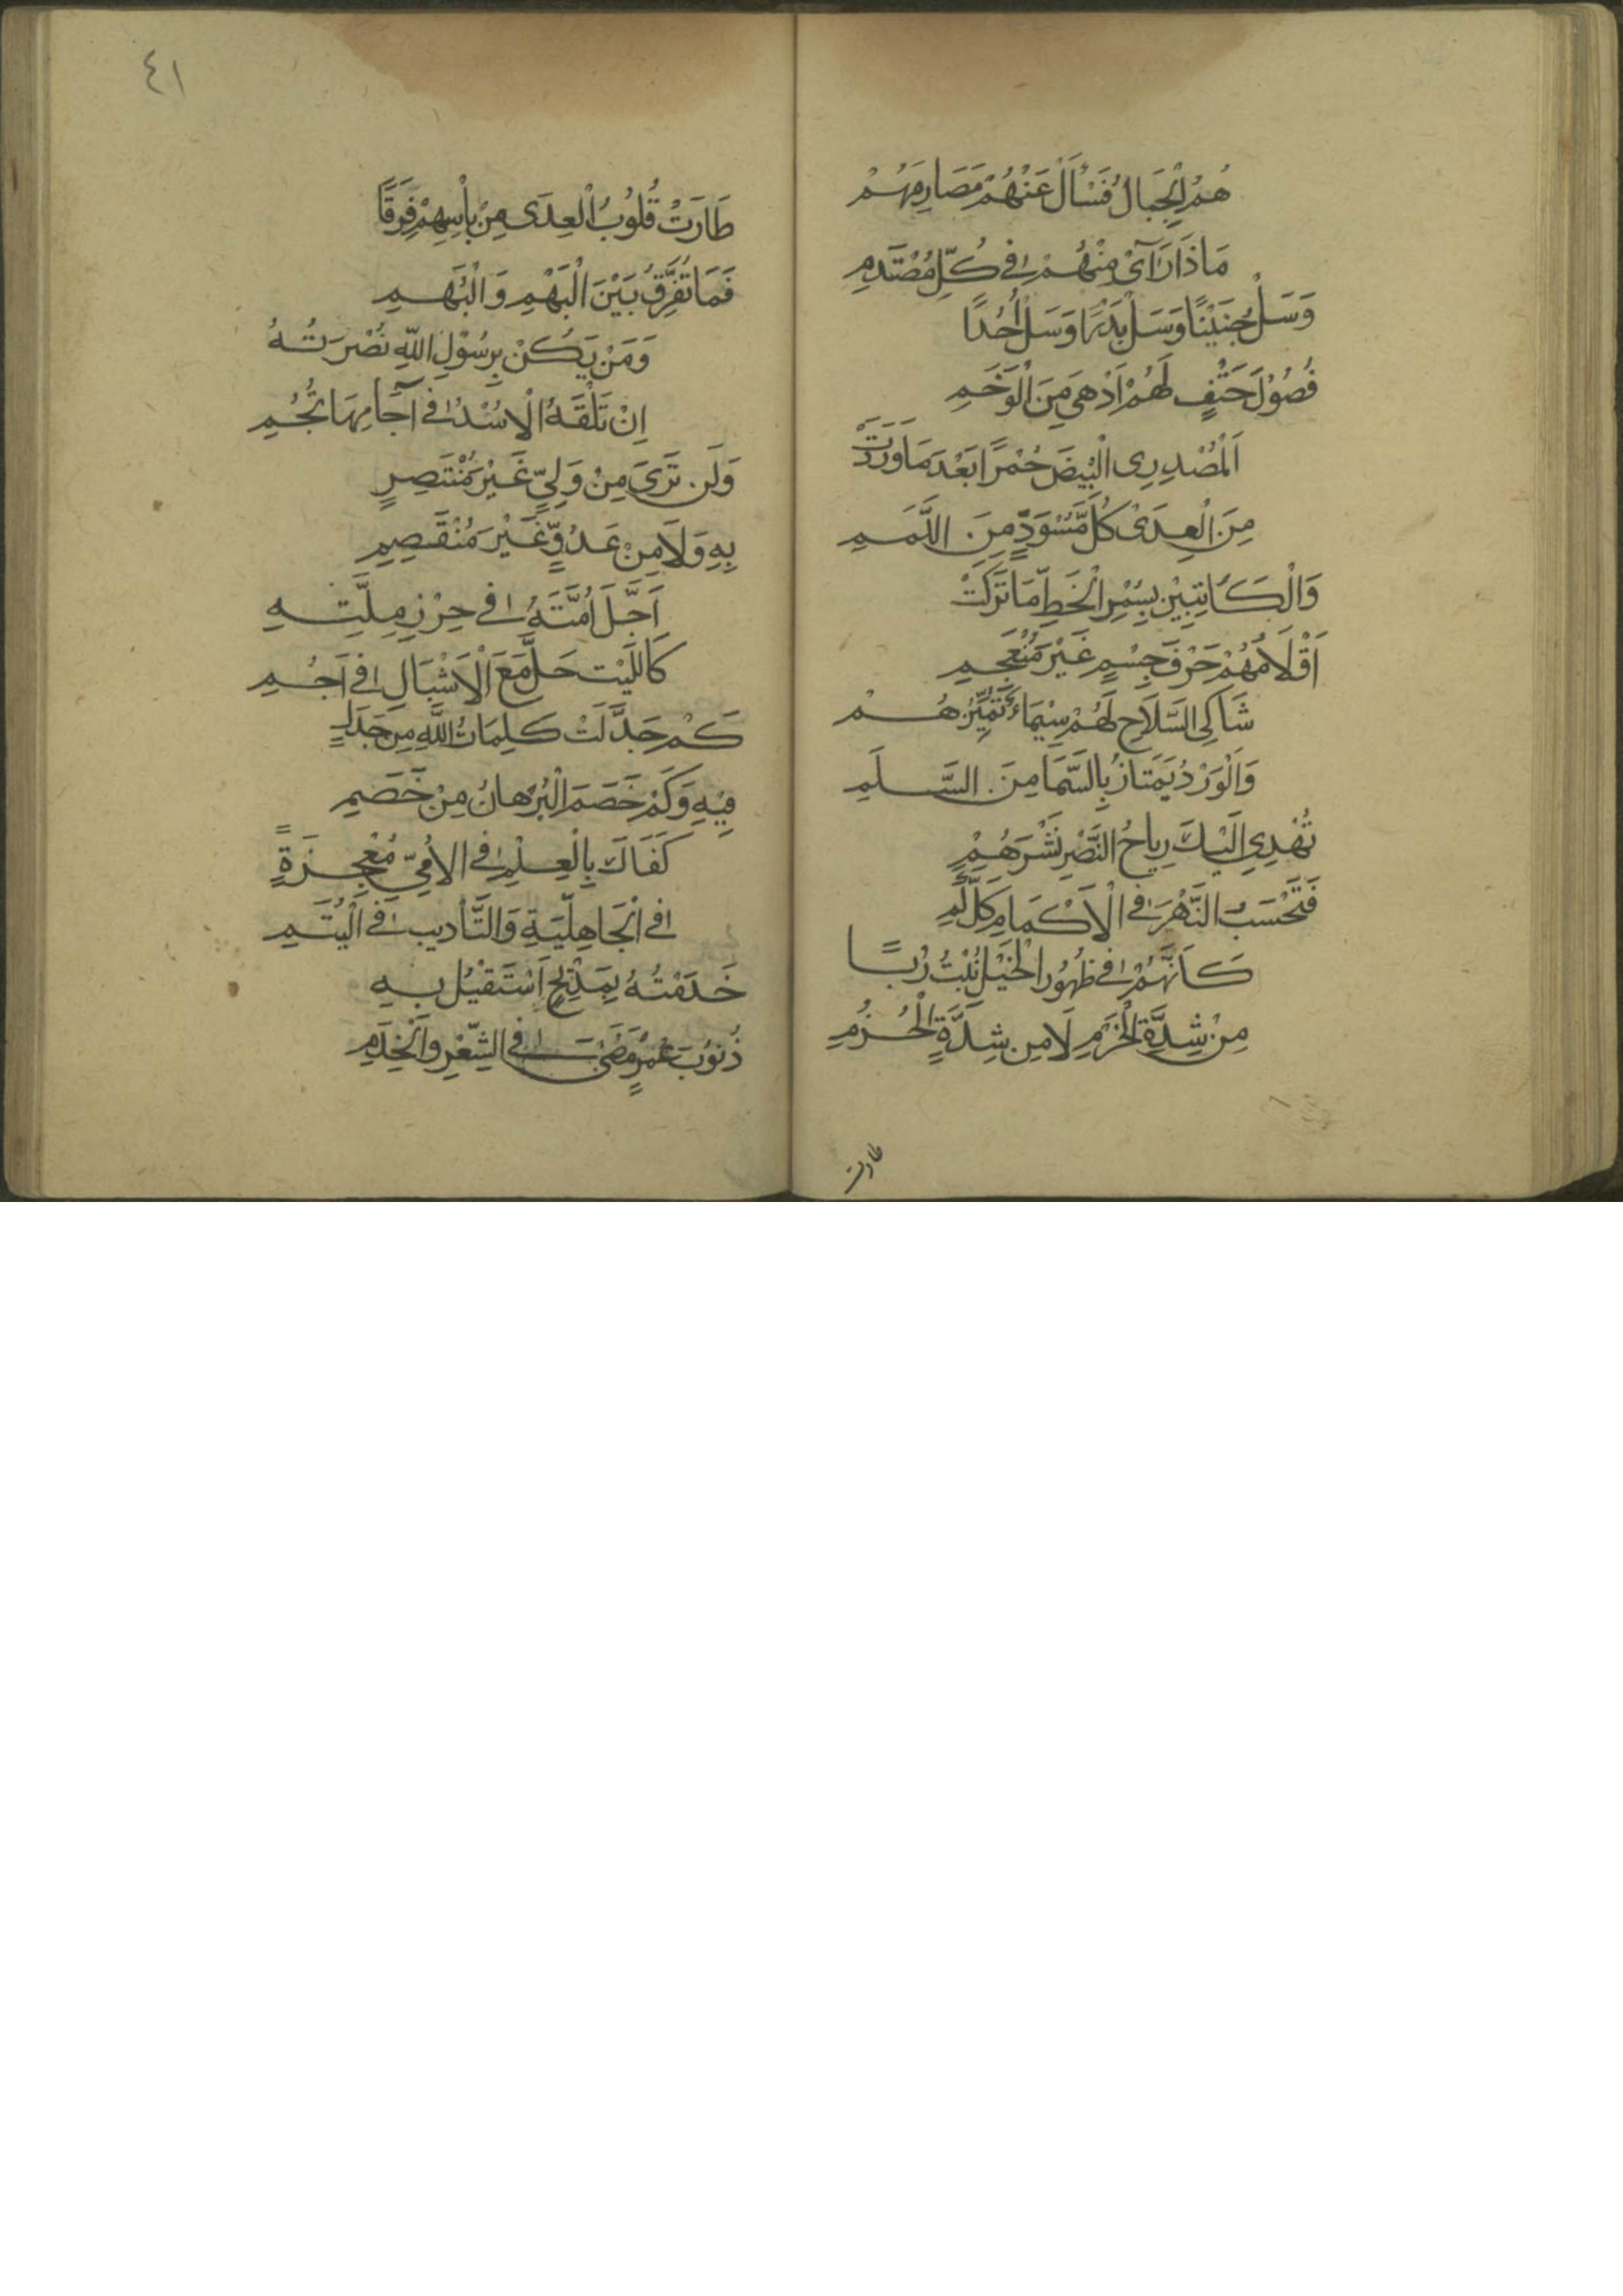 هُمُ الْجِبَالُ فَسْأَلْ عَنْهُمُ مَصَادِمَهُمْ
مَاذَا رَآىْ مِنْهُمْ فِي كُلِّ مُصْتَدَمِ
وَسَلْ حُنَيْنًا وَسَلْ بَدْرًا وَسَلْ اُحُدًا
فُصُوْلَ حَتْفٍ لَهُمْ اَدْهَى مِنَ الْوَخَمِ
اَلْمُصْدِرِى الْبِيْضَ حُمْرًا بَعْدَ مَا وَرَدَتْ
مِنَ الْعِدَىْ كُلَّ مُسْوَدٍّ مِنَ اللَّمَمِ
وَالْكَاتِبِيْنَ بِسُمْرِ الْخَطِّ مَا تَرَكَتْ
اَقْلَامُهُمْ حَرْفَ جِسْمٍ غَيْرَ مُنْعَجِمِ
شَاكِى السِّلَاحِ لَهُمْ سِيْمَاءُ تُمَيِّزُهُمْ
وَالْوَرْدُ يَمْتَازُ بِالسِّمَا مِنَ السَّلَمِ
تُهْدِي اِلَيْكَ رِيَاحُ النَّصْرِ نَشْرَهُمْ
فَتَحْسَبُ الزَّهْرَ فِي الْاَكْمَامِ كُلَّ كَمِ
كَاَنَّهُمْ فِي ظُهُوْرِ الْخَيْلِ نَبْتُ رُبًا
مِنْ شِدَّةِ الْحَزْمِ لَا مِنْ شِدَّةِ الْحُزُمِ
طارت
٤١
طَارَتْ قُلُوْبُ الْعِدَى مِنْ بِأْسِهِمْ فِرَقًا
فَمَا تُفَرِّقُ بَيْنَ الْبَهْمِ وَالْبُهَمِ
وَمَنْ يَكُنْ بِرَسُوْلِ اللّٰهِ نُصْرَتُهُ
اِنْ تَلْقَهُ الْاُسْدُ فِي آجَامِهَا تَجُمِ
وَلَنْ تَرَىَ مِنْ وَلِيٍّ غَيْرَ مُنْتَصِرٍ
بِهِ وَلَا مِنْ عَدُوٍّ غَيْرَ مُنْقَصِمِ
اَحَّلَ اُمَّتَهُ فِي حِرْزِ مِلَّتِهِ
كَاللَّيْتِ حَلَّ مَعَ الْاَشْبَالِ فِي اَجُمِ
كَمْ جَدَّلَتْ كَلِمَاتُ اللّٰهِ مِنْ جَدَلٍ
فِيْهِ وَكَمْ خَصَمَ الْبُرْهَانُ مِنْ خَصَمِ
كَفَاكَ بِالْعِلْمِ فِي الاُمِّيِّ مُعْجِزَةً
فِي الْجَاهِلِيَّةِ وَالتَّأْدِيبِ فِي الْيُتَمِ
خَدَمْتُهُ بِمَدْيِحٍ اَسْتَقِيْلُ بِهِ
ذُنُوْبَ عُمْرٍ مَضَىْ فِي الشِّعْرِ وَالْخِدَمِ